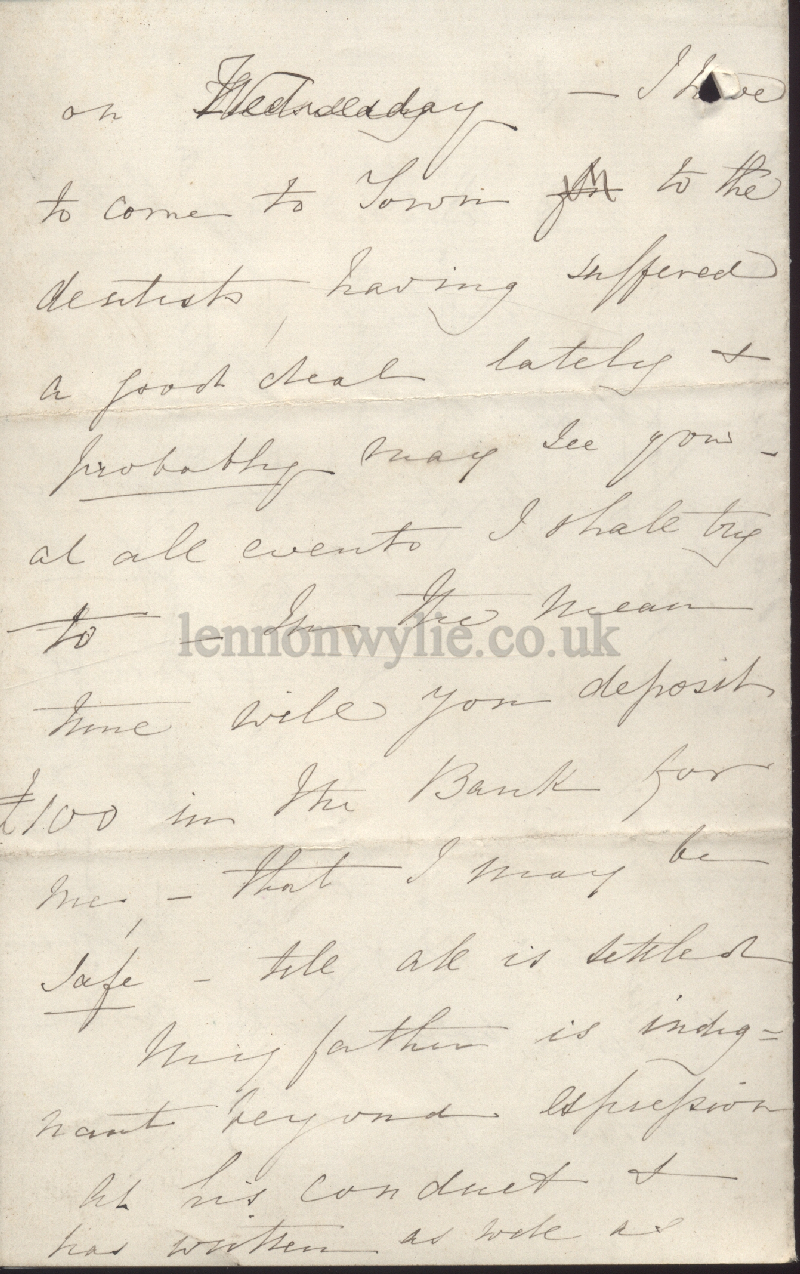 on Wednesday — I have
to come to Town to the
dentists, having suffered
a good deal lately &
probably may see you -
at all events I shall try
to - In the mean
lennonwylie.co.uk
time will you deposit
£100 in the Bank for
me, - that I may be
safe - till all is settled
My father is indig=
nant beyond expression
at his conduct &
has written as well as